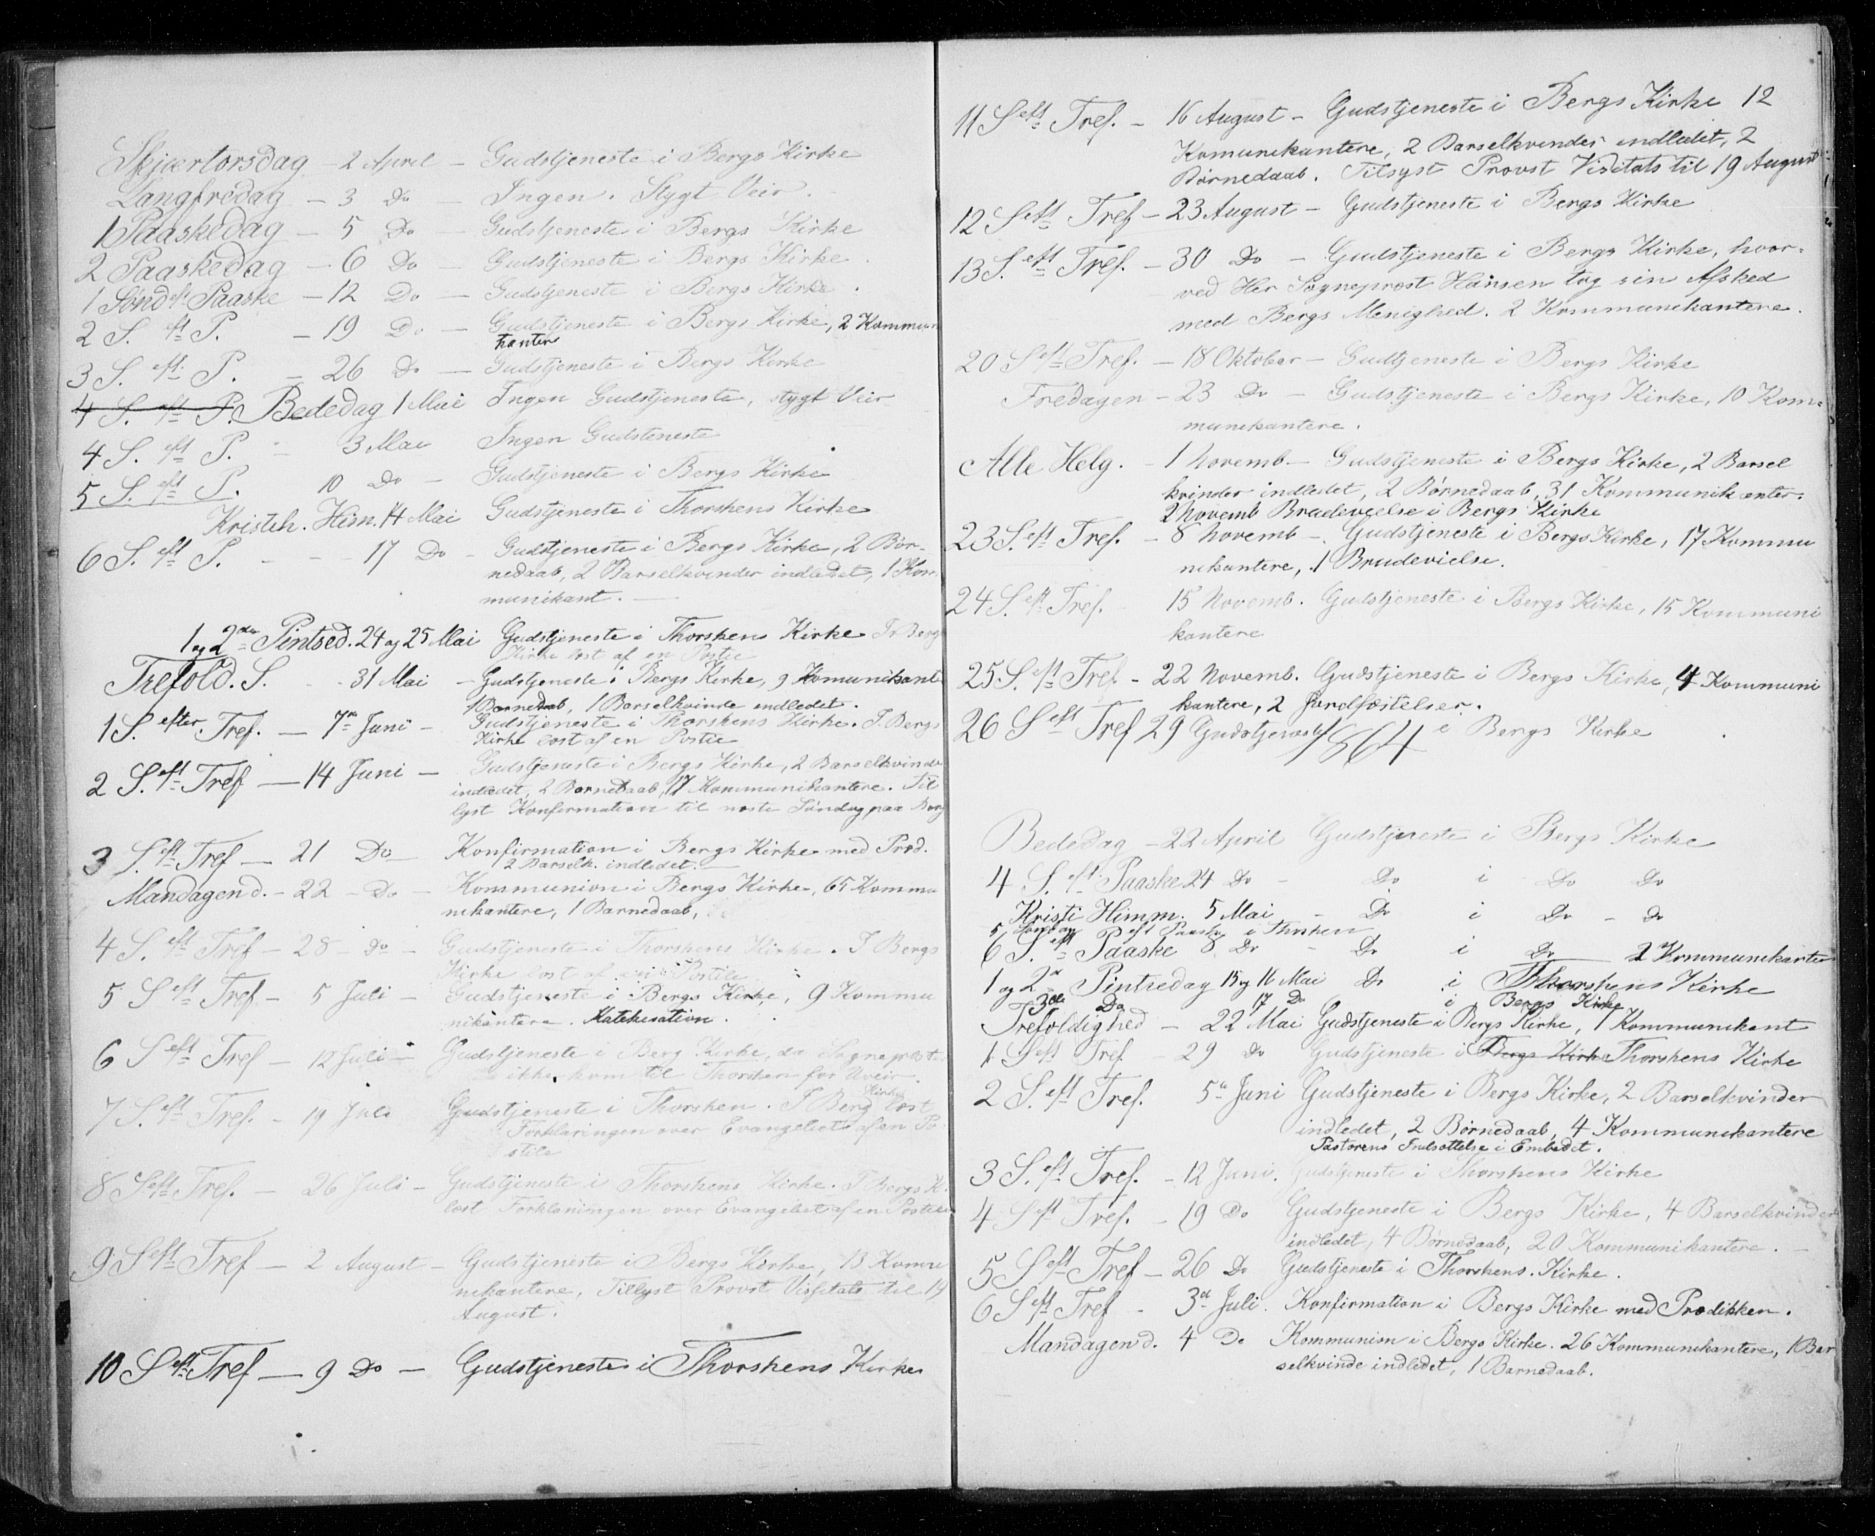 Skjærtorsdag – 2 April – Gudstjeneste i Bergs Kirke
Langfredag – 3 Do – Ingen. Stygt Veir.
1 Paaskedag – 5 Do – Gudstjeneste i Bergs Kirke
2 Paaskedag – 6 Do – Gudstjeneste i Bergs Kirke.
1 Sønd. eft. Paaske – 12 Do – Gudstjeneste i Bergs Kirke.
2 S. eft P. – 19 Do – Gudstjeneste i Bergs Kirke, 2 Kommuni
kantere
3 S. eft. P. – 26 Do – Gudstjeneste i Bergs Kirke
4 S. eft P. Bededag 1 Mai Ingen Gudstjeneste, stygt Veir
4 S. eft P. – 3 Mai Ingen Gudsteneste
5 S. eft P. 10 Do – Gudstjeneste i Bergs Kirke
Kristih. Him. 14 Mai Gudstjeneste i Thorskens Kirke
6 S. eft P. – – 17 Do – Gudstjeneste i Bergs Kirke, 2 Bør-
nedaab, 2 Barselkvinder indledet, 1 Kom
munikant. —
1 og 2den Pintsed. 24 og 25 Mai Gudstjeneste i Thorskens Kirke I Bergs
Kirke læst af en Postil
Trefold. S. – 31 Mai – Gudstjeneste i Bergs Kirke, 9 Komunikant
1 Barnedaab, 1 Barselkvinde indledet.
1 S. efter Tref. – 7de Juni – Gudstjeneste i Thorskens Kirke. I Bergs
Kirke læst af en Postil
2 S. eft Tref – 14 Juni – Gudstjeneste i Bergs Kirke, 2 Barselkvinder
indledet, 2 Barnedaab, 17 Kommunikantere. Til
lyst Konfirmation til næste Søndag paa Berg
3 S. eft Tref – 21 Do – Konfirmation i Bergs Kirke med Præd.
2 Barselk. indledet. —
Mandagen d. – 22 – Do – Kommunion i Bergs Kirke, 65 Kommu
nikantere, 1 Barnedaab,
4 S. eft Tref – 28 – Do – Gudstjeneste i Thorskens Kirke. I Bergs
Kirke læst af en Postile
5 S eft Tref – 5 Juli – Gudstjeneste i Bergs Kirke, 9 Kommu
nikantere. Katekisation.
6 S eft Tref – 12 Juli – Gudstjeneste i Berg Kirke, da Sognepræst
ikke kom til Thorsken for Uveir.
7 S. eft Tref. – 19 Juli Gudstjeneste i Thorsken. I Berg Kirke læst
Forklaringen over Evangeliet af en Po-
stile
8 S eft Tref. – 26 Juli – Gudstjeneste i Thorskens Kirke. I Bergs K.
læst Forklaringen over Evangeliet af en Postille
9 S eft Tref – 2 August – Gudstjeneste i Bergs Kirke, 13 Kommu
nikantere, Tillyst Provst Visitats til 19
August.
10 S eft Tref – 9 Do – Gudstjeneste i Thorskens Kirke
11 S eft Tref. – 16 August – Gudstjeneste i Bergs Kirke 12
Komunikantere, 2 Barselkvinder indledet, 2
Børnedaab. Tilsyst Provst Visitats til 19 August
12 S eft Tref – 23 August – Gudstjeneste i Bergs Kirke
13 S. eft Tref. – 30 Do – Gudstjeneste i Bergs Kirke, hvor-
ved Her Sogneprest Hansen tog sin Afsked
med Bergs Menighed. 2 Kommunikantere.
20 S eft Tref. – 18 Oktober – Gudtjeneste i Bergs Kirke
Fredagen – 23 Do – Gudstjeneste i Bergs Kirke, 10 Kom-
munikantere.
Alle Helg. – 1 Novemb – Gudstjeneste i Bergs Kirke, 2 Barsel
kvinder indledet, 2 Børnedaab, 31 Kommunikanter.
2 Novemb Brudevielse i Bergs Kirke
23 S. eft Tref. – 8 Novemb – Gudstjeneste i Bergs Kirke, 17 Kommu
nikantere, 1 Brudevielse.
24 S. eft Tref. 15 Novemb. Gudstjeneste i Bergs Kirke, 15 Kommuni
kantere
25 S. eft Tref – 22 Novemb. Gudstjeneste i Bergs Kirke, 4 Kommuni
kantere, 2 Jordfæstelser.
26 S eft Tref 29 Gudstjeneste i Bergs Kirke
1864
Bededag – 22 April Gudstjeneste i Bergs Kirke
4 S. eft. Paaske 24 Do – Do i Do Do
Kristi Himm. 5 Mai – Do i Do – Do
5 Søndag eft Paaske i Thorsken
6 S. eft Paaske 8 Do – Do i Do 2 Kommunikanter
1 og 2n Pintsedag 15 og 16 Mai Do i Thorskens Kirke
3die Do 17 Do i Bergs Kirke
Trefoldighed – 22 Mai Gudstjeneste i Bergs Kirke, 1 Kommunikant
1 S eft Tref – 29 Do Gudstjeneste i Bergs Kirke Thorskens Kirke
2 S. eft Tref. 5te Juni Gudstjeneste i Bergs Kirke, 2 Barselkvinder
indledet, 2 Børnedaab, 4 Kommunikantere
Pastorens Indsættelse i Embedet.
3 S. eft Tref. – 12 Juni. Gudstjeneste i Thorskens Kirke
4 S eft Tref. – 19 Do Gudstjeneste i Bergs Kirke, 4 Barselkvinder
indledet, 4 Børnedaab, 20 Kommunikantere.
5 S eft Tref – 26 Do Gudstjeneste i Thorskens Kirke.
6 S eft Tref – 3die Juli. Konfirmation i Bergs Kirke med Prædikken.
Mandagen d. 4 Do Kommunion i Bergs Kirke. 26 Kommunikantere, 1 Bar
selkvinde indledet, 1 Barnedaab.